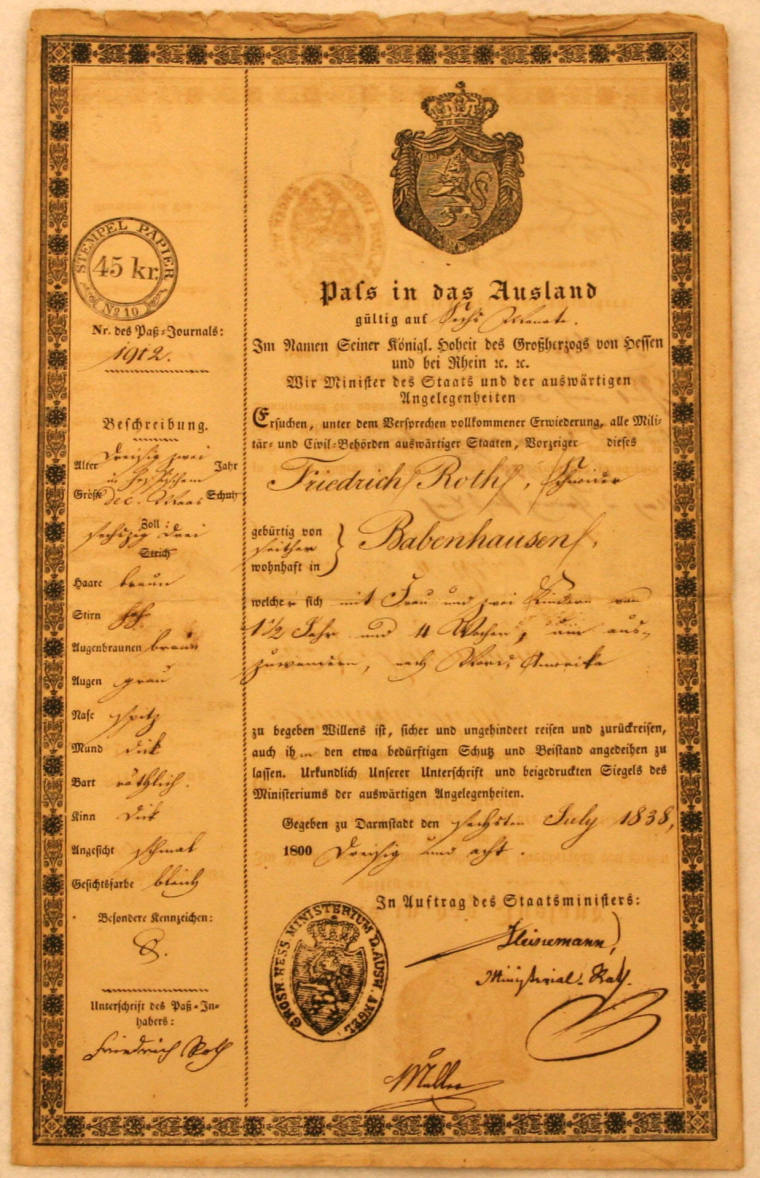 STEMPEL PAPIER
45 kr.
No 10
Nr. des Paß-Journals:
1912.
Beschreibung.
Alter Dreisig zwei Jahr
Größe dec. Maas Schuh
sechszig drei Zoll:
Strich
Haare braun
Stirn hoch
Augenbraunen braun
Augen grau
Nase spitz
Mund dick
Bart röthlich.
Kinn dick
Angesicht schmal
Gesichtsfarbe bleich
Besondere Kennzeichen:
Unterschrift des Paß-In-
habers:
Friedrich Roth
Pass in das Ausland
gültig auf Sechs Monate.
Im Namen Seiner Königl. Hoheit des Großherzogs von Hessen
und bei Rhein ꝛc. ꝛc.
Wir Minister des Staats und der auswärtigen
Angelegenheiten
Ersuchen, unter dem Versprechen vollkommener Erwiederung, alle Mili-
tär- und Civil-Behörden auswärtiger Staaten, Vorzeiger dieses
Friedrich Roth, Schneider
gebürtig von
seither
wohnhaft in
Babenhausen,
welcher sich mit Frau und zwei Kindern von
1½ Jahr und 4 Wochen, um aus-
zuwandern, nach Nord Amerika
zu begeben Willens ist, sicher und ungehindert reisen und zurückreisen,
auch ihm den etwa bedürftigen Schutz und Beistand angedeihen zu
lassen. Urkundlich Unserer Unterschrift und beigedruckten Siegels des
Ministeriums der auswärtigen Angelegenheiten.
Gegeben zu Darmstadt den sechsten July 1838,
1800 Dreisig und acht.
In Auftrag des Staatsministers:
Ministerial-Rath.
GROSH. HESS. MINISTERIUM D. AUSW. ANGEL.
Müller